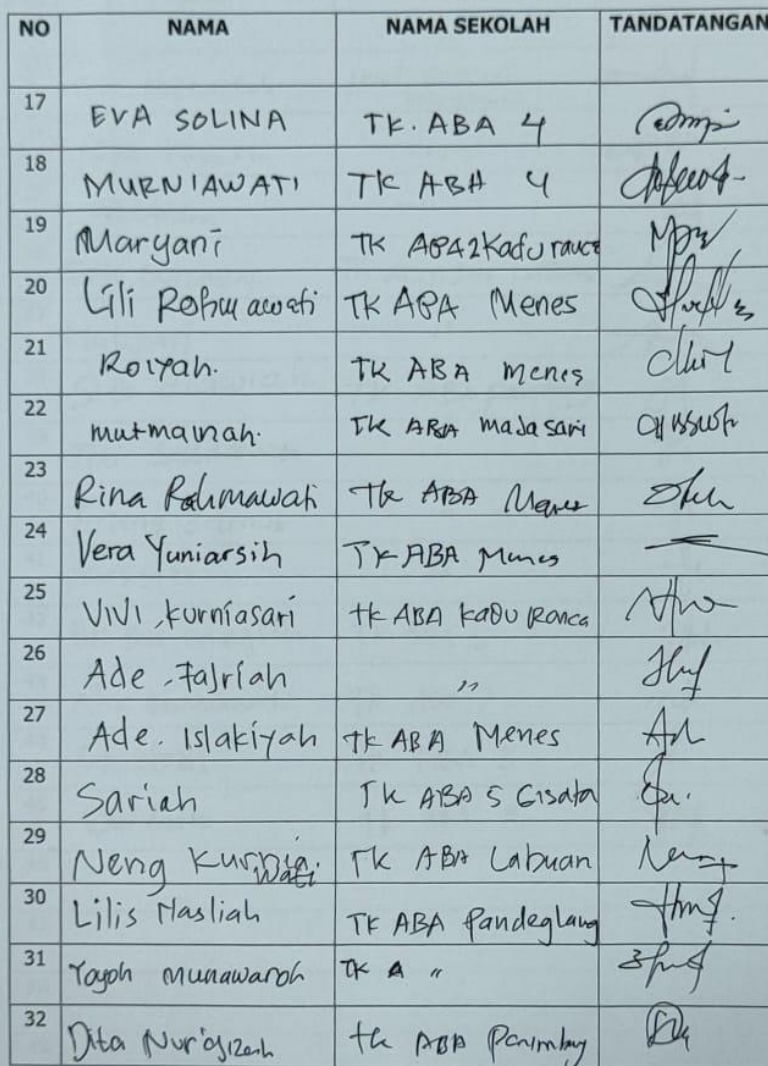 NO NAMA NAMA SEKOLAH TANDATANGAN
17 EVA SOLINA TK. ABA 4
18 MURNIAWATI TK ABA 4
19 Maryani TK ABA 2 Kadu rauce
20 Lili Rohmawati TK ABA Menes
21 Roiyah. TK ABA menes
22 mutmainah. TK ABA majasari
23 Rina Rahmawati Tk ABA Menes
24 Vera Yuniarsih TK ABA Menes
25 VIVI, kurniasari tk ABA KaDu Ranca
26 Ade, Fajriah "
27 Ade. Islakiyah TK ABA Menes
28 Sariah TK ABA 5 Cisata
29 Neng Kurnia Wati TK ABA Labuan
30 Lilis Masliah TK ABA Pandeglang
31 Yayoh Munawaroh TK A "
32 Dita Nur'azizah tk ABA Panimbang